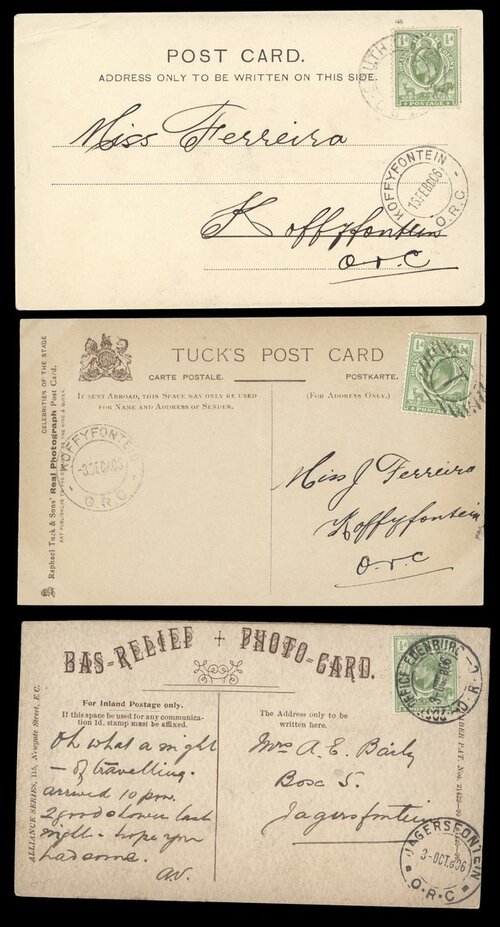 POST CARD.
ADDRESS ONLY TO BE WRITTEN ON THIS SIDE.
½d ½d
POSTAGE
Miss Ferreira
KOFFYFONTEIN
O.R.C
Koffyfontein
O.R.C
TUCK'S POST CARD
CARTE POSTALE. POSTKARTE.
IF SENT ABROAD, THIS SPACE MAY ONLY BE USED
FOR NAME AND ADDRESS OF SENDER.
(FOR ADDRESS ONLY.)
½d
POSTAGE
Raphael Tuck & Sons' Real Photograph Post Card.
CELEBRITIES OF THE STAGE
KOFFYFONTEIN
O.R.C.
Miss J Ferreira
Koffyfontein
O.R.C
BAS-RELIEF + PHOTO-CARD.
For Inland Postage only.
If this space be used for any communica-
tion 1d. stamp must be affixed.
The Address only to be
written here.
Oh what a night
— of travelling.
arrived 10 pm.
2 good showers last
night - hope you
had some.
A.V.
Mrs A. E.
Box 5.
Jagersfontein
ALLIANCE SERIES, 115, Newgate Street, E.C.
EDENBURG
O.R.C
JAGERSFONTEIN
3-OCT.06
O.R.C